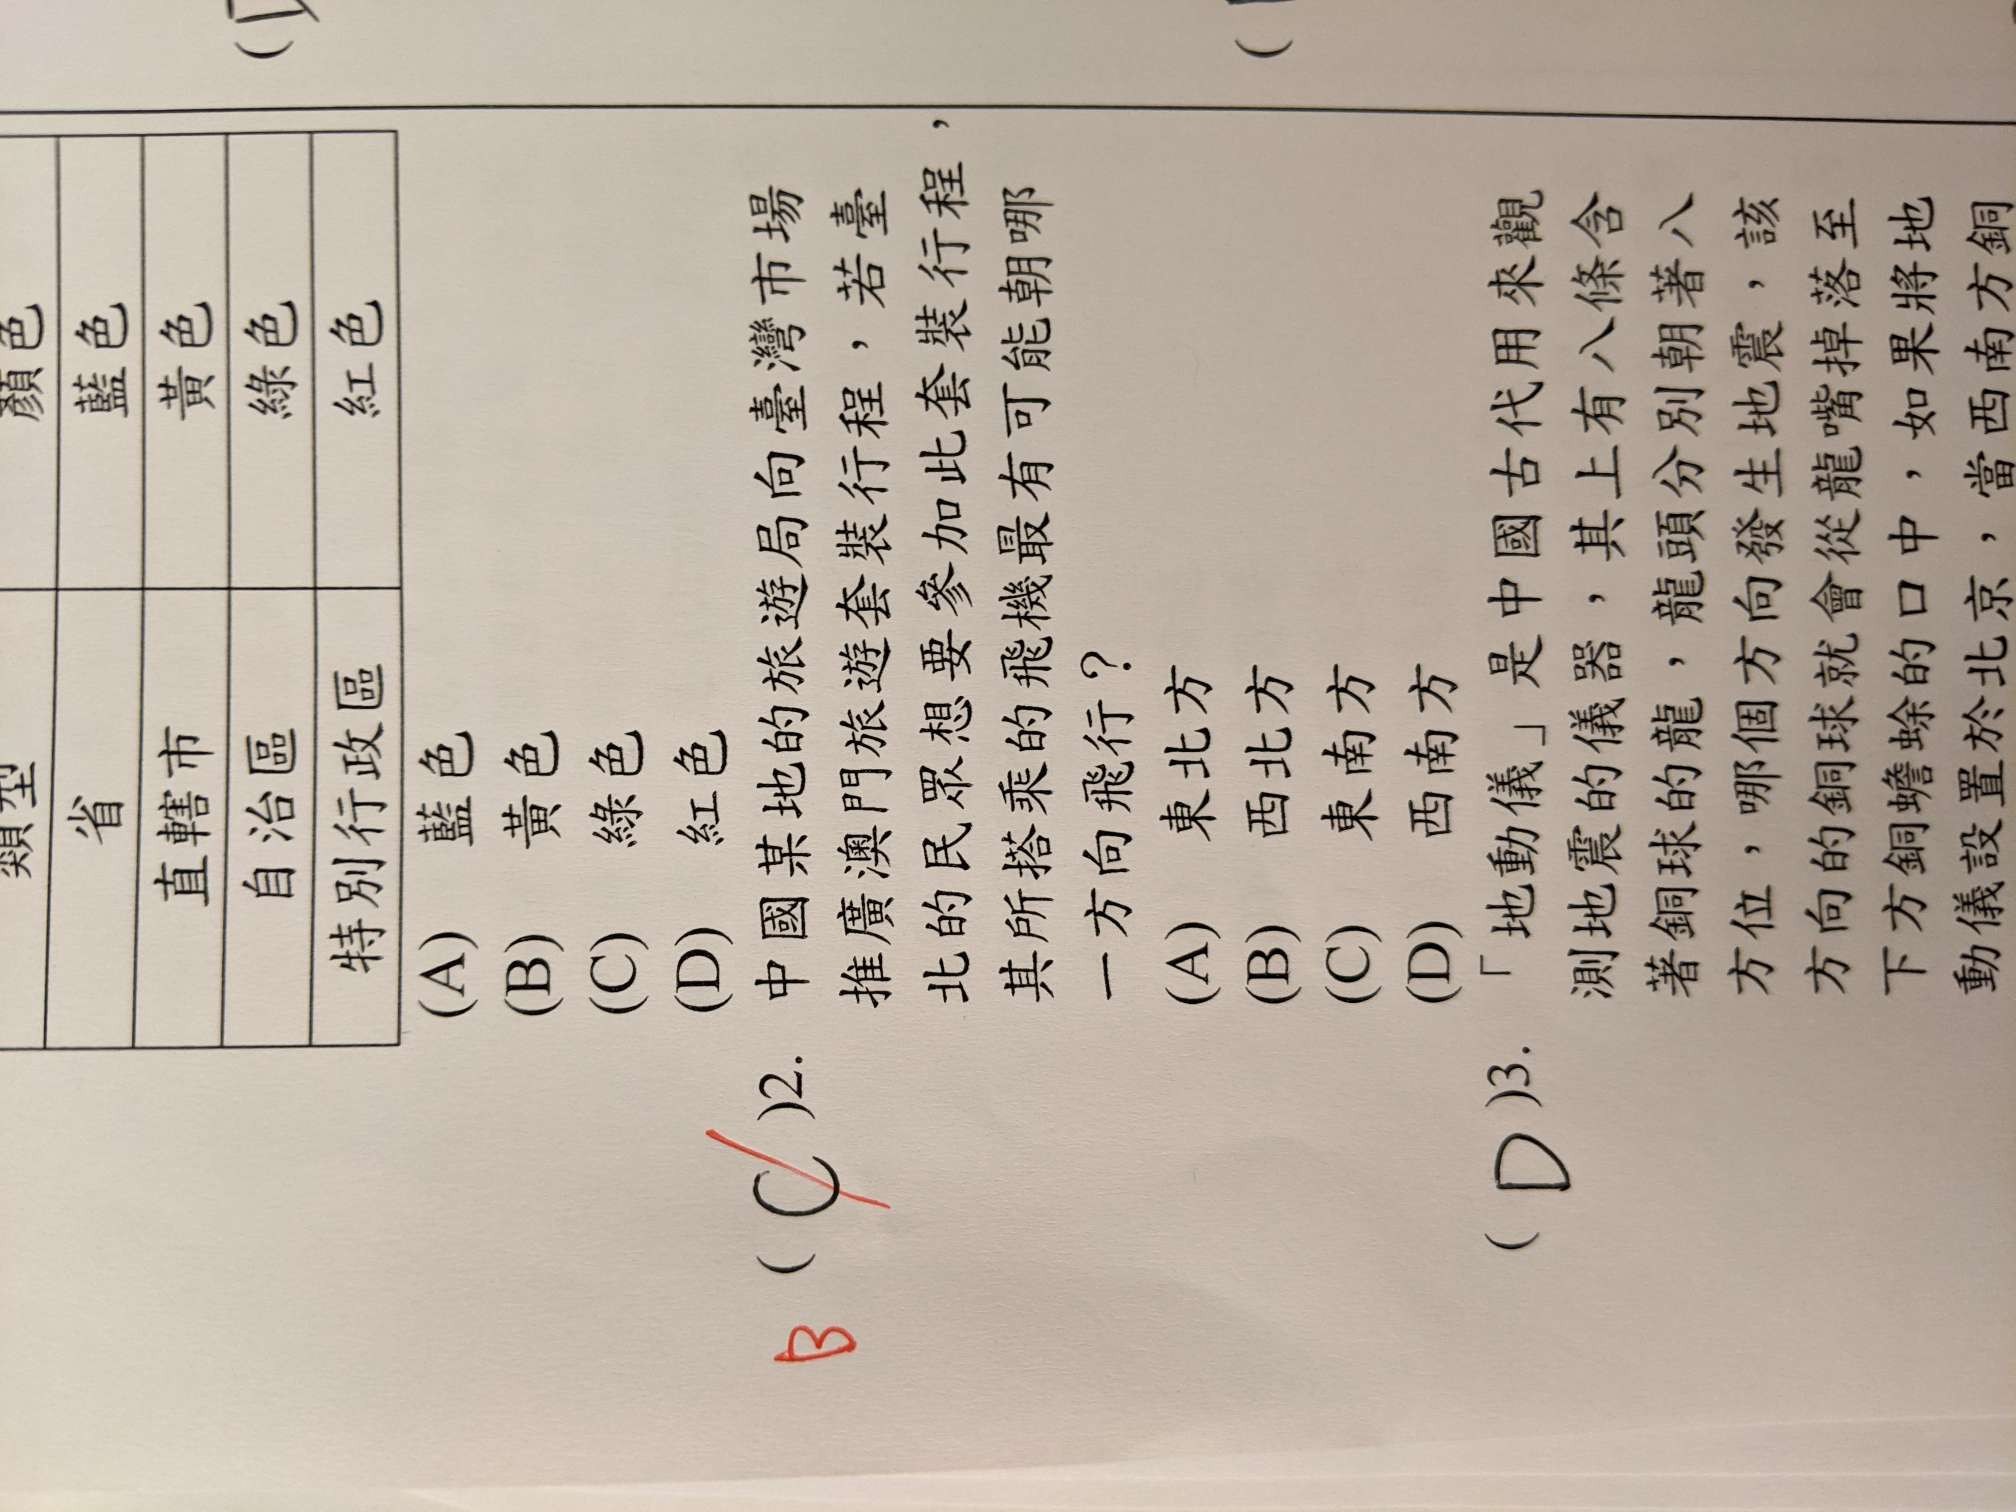 類型 顏色
省 藍色
直轄市 黃色
自治區 綠色
特別行政區 紅色
(A) 藍色
(B) 黃色
(C) 綠色
(D) 紅色
B ( C )2. 中國某地的旅遊局向臺灣市場
推廣澳門旅遊套裝行程，若臺
北的民眾想要參加此套裝行程，
其所搭乘的飛機最有可能朝哪
一方向飛行？
(A) 東北方
(B) 西北方
(C) 東南方
(D) 西南方
( D )3. 「地動儀」是中國古代用來觀
測地震的儀器，其上有八條含
著銅球的龍，龍頭分別朝著八
方位，哪個方向發生地震，該
方向的銅球就會從龍嘴掉落至
下方銅蟾蜍的口中，如果將地
動儀設置於北京，當西南方銅